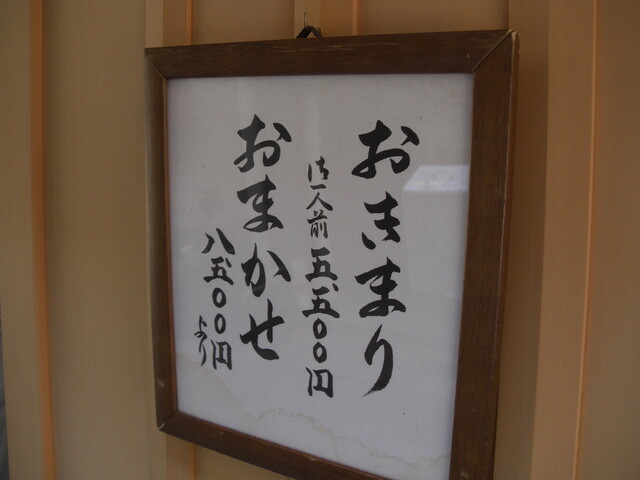 おきまり
御一人前 五、五〇〇円
おまかせ
八、五〇〇円より